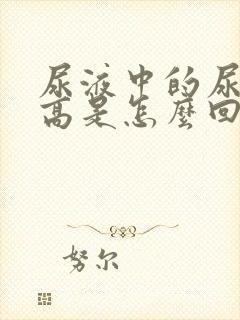 尿液中的尿
高是怎麼回
努尔